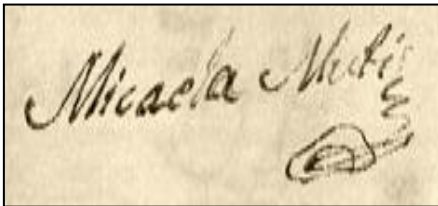 Micaela Mutis